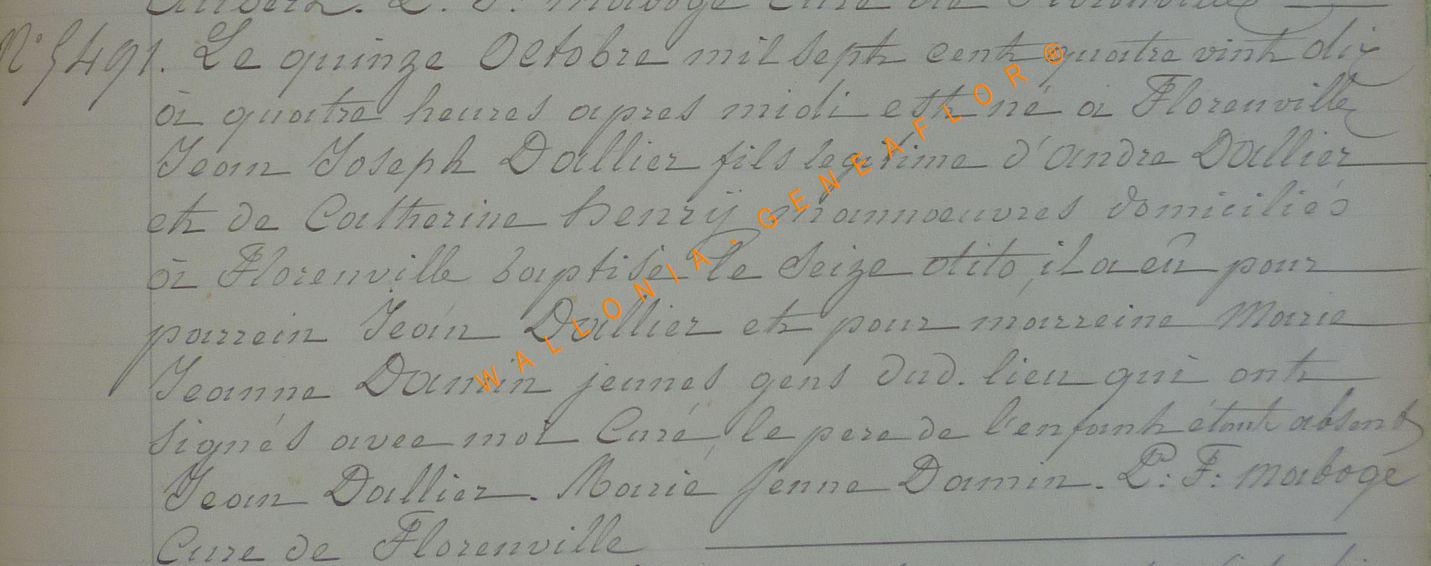 Cure de Florenville
N° 5491. Le quinze Octobre mil sept cent quatre vint dix
à quatre heures apres midi est né à Florenville
Jean Joseph Dallier fils legitime d'andre Dallier
et de Catherine henrÿ mannoeuvres domiciliés
à Florenville baptisé le Seize dito, il a eû pour
parrein Jean Dallier et pour marreine Marie
Jeanne Damin jeunes gens dud. lieu qui ont
signés avec moi Curé, le pere de l'enfant étant absent
Jean Dallier. Marie Jenne Damin. P: F: maboge
Cure de Florenville
WALLONIA-GENEAFLOR®